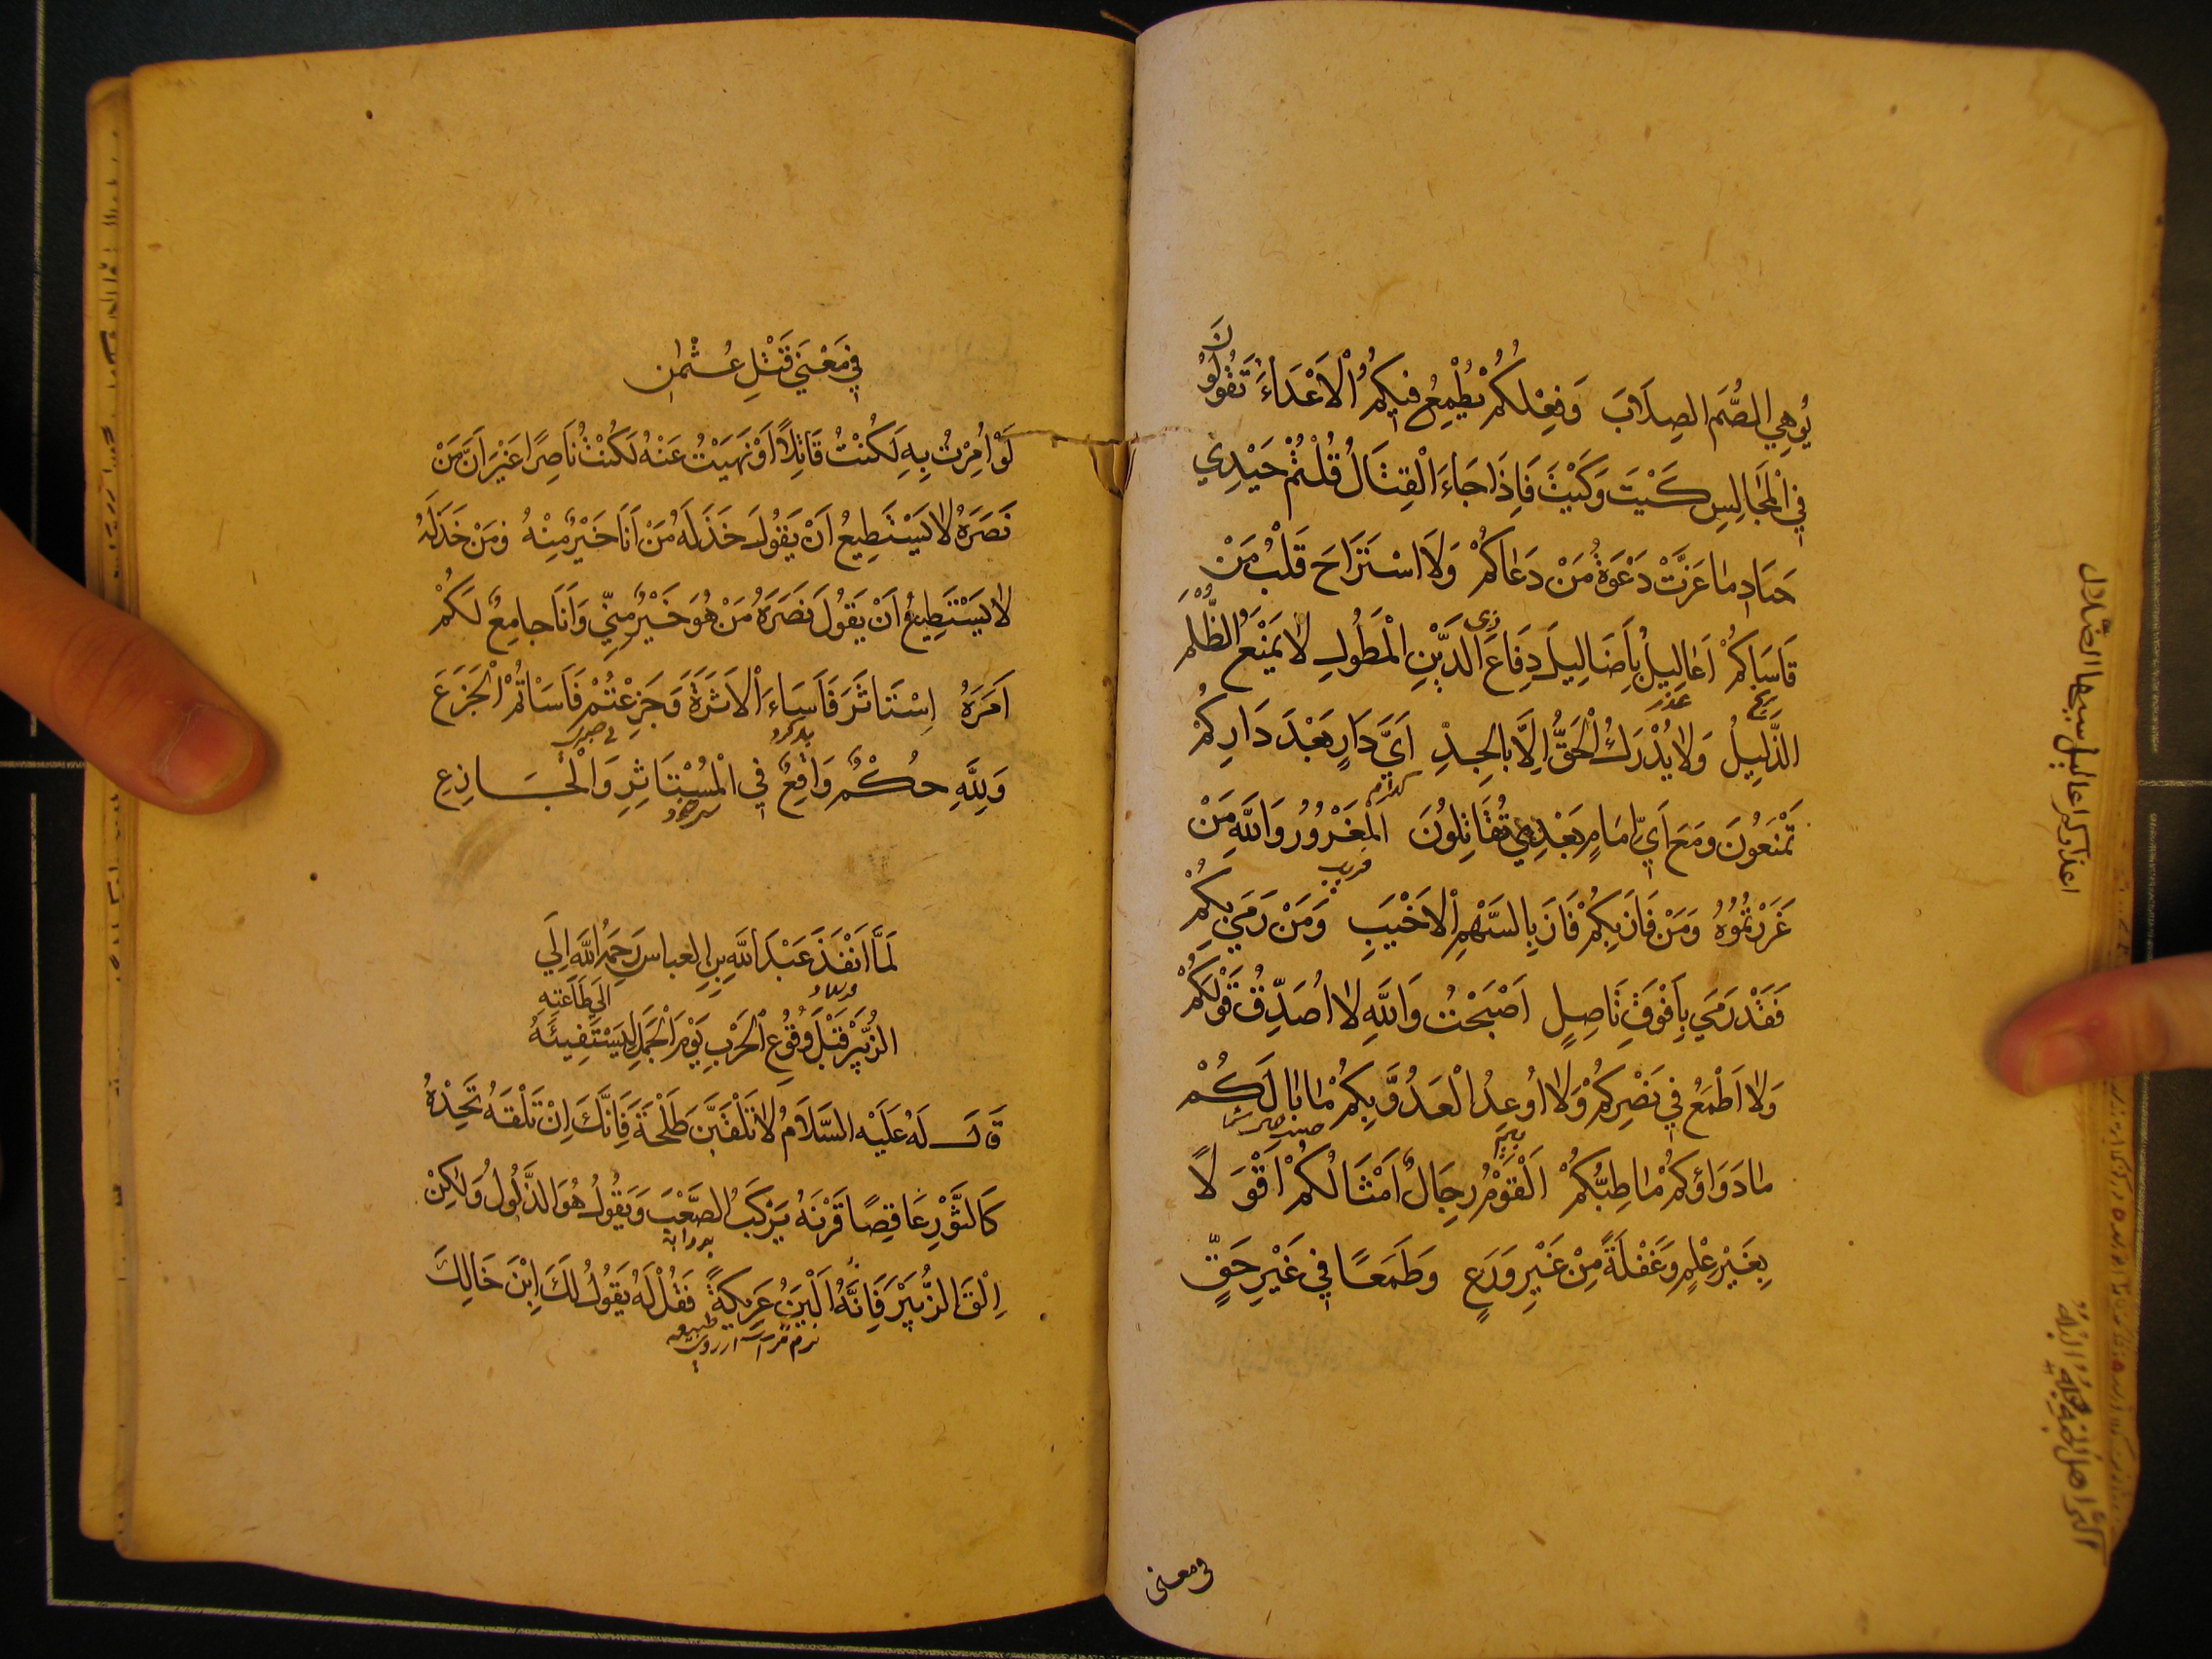 يُوهِي الصُّمَّ الصِلَابَ وَفِعْلُكُمْ يُطْمِعُ فِيكُمُ الْاَعْدَاءَ تَقُولُونَ
فِي الْمَجَالِسِ كَيْتَ وَكَيْتَ فَاِذَا جَاءَ الْقِتَالُ قُلْتُمْ حَيْدِي
حَيَادِ مَا عَزَّتْ دَعْوَةُ مَنْ دَعَاكُمْ وَلَا اسْتَرَاحَ قَلْبُ مَنْ
قَاسَاكُمْ اَعَالِيلُ بِاَضَالِيلَ دِفَاعَ ذِي الدَّيْنِ الْمَطُولِ لَا يَمْنَعُ الظُّلْمَ
الذَّلِيلُ وَلَا يُدْرَكُ الْحَقُّ اِلَّا بِالْجِدِّ اَيَّ دَارٍ بَعْدَ دَارِكُمْ
تَمْنَعُونَ وَمَعَ اَيِّ اِمَامٍ بَعْدِي تُقَاتِلُونَ الْمَغْرُورُ وَاللهِ مَنْ
غَرَرْتُمُوهُ وَمَنْ فَازَ بِكُمْ فَازَ بِالسَّهْمِ الْاَخْيَبِ وَمَنْ رَمَى بِكُمْ
فَقَدْ رَمَى بِاَفْوَقَ نَاصِلٍ اَصْبَحْتُ وَاللهِ لَا اُصَدِّقُ قَوْلَكُمْ
وَلَا اَطْمَعُ فِي نَصْرِكُمْ وَلَا اُوعِدُ الْعَدُوَّ بِكُمْ مَا بَالُكُمْ
مَا دَوَاؤُكُمْ مَا طِبُّكُمْ اَلْقَوْمُ رِجَالٌ اَمْثَالُكُمْ اَقَوْلًا
بِغَيْرِ عِلْمٍ وَغَفْلَةً مِنْ غَيْرِ وَرَعٍ وَطَمَعًا فِي غَيْرِ حَقٍّ
في معنى
فِي مَعْنَى قَتْلِ عُثْمٰن
لَوْ اُمِرْتُ بِهِ لَكُنْتُ قَاتِلًا اَوْ نَهَيْتُ عَنْهُ لَكُنْتُ نَاصِرًا غَيْرَ اَنَّ مَنْ
نَصَرَهُ لَا يَسْتَطِيعُ اَنْ يَقُولَ خَذَلَهُ مَنْ اَنَا خَيْرٌ مِنْهُ وَمَنْ خَذَلَهُ
لَا يَسْتَطِيعُ اَنْ يَقُولَ نَصَرَهُ مَنْ هُوَ خَيْرٌ مِنِّي وَاَنَا جَامِعٌ لَكُمْ
اَمْرَهُ اِسْتَاثَرَ فَاَسَاءَ الْاَثَرَةَ وَجَزِعْتُمْ فَاَسَاْتُمُ الْجَزَعَ
وَلِلّهِ حُكْمٌ وَاقِعٌ فِي الْمُسْتَاثِرِ وَالْجَازِعِ
لَمَّا اَنْفَذَ عَبْدَ اللهِ بن العباس رَحِمَهُ اللهُ اِلَى
الزُّبَيْرِ قَبْلَ وُقُوعِ الْحَرْبِ يَوْمَ الْجَمَلِ لِيَسْتَفِيئَهُ اِلَى طَاعَتِهِ
قَالَ لَهُ عَلَيْهِ السَّلَامُ لَا تَلْقَيَنَّ طَلْحَةَ فَاِنَّكَ اِنْ تَلْقَهُ تَجِدْهُ
كَالثَّوْرِ عَاقِصًا قَرْنَهُ يَرْكَبُ الصَّعْبَ وَيَقُولُ هُوَ الذَّلُولُ وَلٰكِنْ
اِلْقَ الزُّبَيْرَ فَاِنَّهُ اَلْيَنُ عَرِيكَةً فَقُلْ لَهُ يَقُولُ لَكَ اِبْنُ خَالِكَ